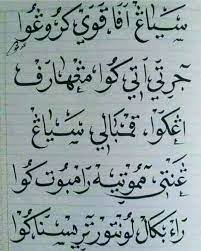 سياغ افا قوي كروغوا
جرتي اتي كوا مغهارف
اغكوا، قنبالي سياغ
غنتي مموتيه رامبوت كوا
راء بكال لونتور تريسناكوا